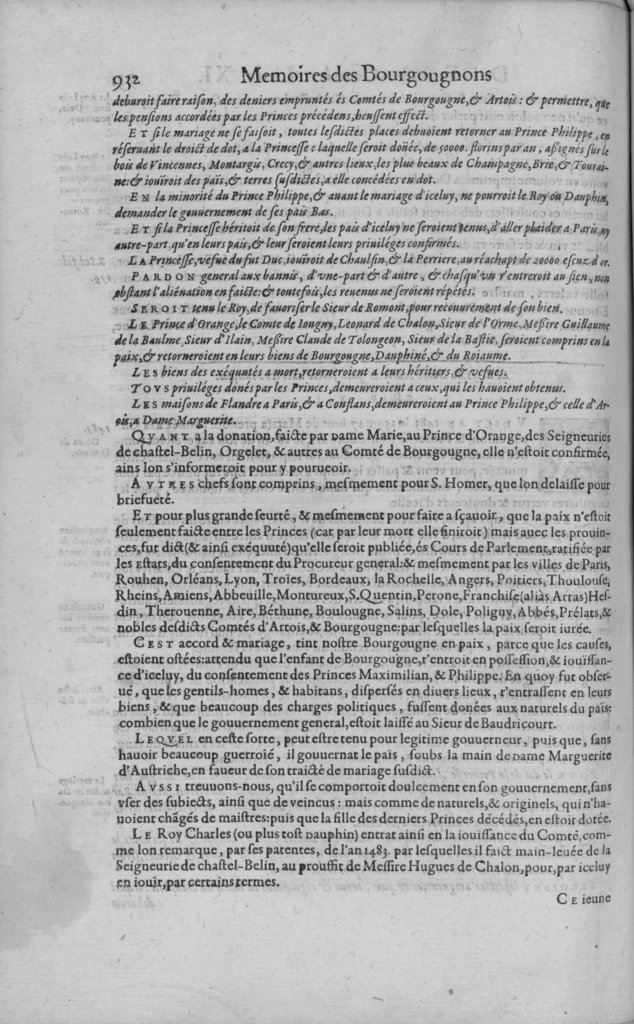 932 Memoires des Bourgougnons
deburoit faire raison, des deniers empruntés és Comtés de Bourgougne,& Artois : & permettre, que
les pensions accordées par les Princes précedens,heussent effect.
ET si le mariage ne se faisoit, toutes lesdictes places debuoient retorner au Prince Philippe, en
réseruant le droict de dot, a la Princesse : laquelle seroit doüée, de 50000. florins par an, aßignés sur le
bois de Vincennes, Montargis, Crecy,& autres lieux,les plus beaux de Champagne,Brie,& Tourai-
ne:& iouïroit des païs,& terres susdictes,a elle concédées en dot.
EN la minorité du Prince Philippe,& auant le mariage d'iceluy, ne pourroit le Roy ou Dauphin,
demander le gouuernement de ses païs Bas.
ET si la Princesse héritoit de son frere,les païs d'iceluy ne seroient tenus,d'aller plaider a Paris,ny
autre-part,qu'en leurs païs,& leur seroient leurs priuiléges confirmés.
LA Princesse,vefue du fut Duc,iouïroit de Chaulsin,& la Perriere,au réachapt de 20000 escuz d'or.
PARDON general aux bannis, d'vne-part & d'autre, & chasqu'vn r'entreroit au sien, non
obstant l'aliénation en faicte:& toutefois,les reuenus ne seroient répétés.
SEROIT tenu le Roy,de fauoriser le Sieur de Romont,pour recouurément de son bien.
LE Prince d'Orange,le Comte de Iougny,Leonard de Chalon,Sieur de l'Orme,Meßire Guillaume
de la Baulme,Sieur d'Ilain, Meßire Claude de Tolongeon, Sieur de la Bastie,seroient comprins en la
paix,& retorneroient en leurs biens de Bourgougne,Dauphiné,& du Roiaume.
LES biens des exéquutés a mort,retorneroient a leurs héritiers,& vefues.
TOVS priuiléges donés par les Princes,demeureroient a ceux,qui les hauoient obtenus.
LES maisons de Flandre a Paris,& a Conflans,demeureroient au Prince Philippe,& celle d'Ar-
ois,a Dame Marguerite.
QVANT a la donation,faicte par Dame Marie,au Prince d'Orange,des Seigneuries
de chastel-Belin, Orgelet, & autres au Comté de Bourgougne, elle n'estoit confirmée,
ains lon s'informeroit pour y pouruoir.
AVTRES chefs sont comprins, mesmement pour S. Homer, que lon delaisse pour
briefueté.
ET pour plus grande seurté, & mesmement pour faire a sçauoir, que la paix n'estoit
seulement faicte entre les Princes (car par leur mort elle finiroit) mais auec les prouin-
ces,fut dict(& ainsi exéquuté)qu'elle seroit publiée,és Cours de Parlement,ratifiée par
les Estats,du consentement du Procureur general:& mesmement par les villes de Paris,
Rouhen, Orléans, Lyon, Troïes, Bordeaux, la Rochelle, Angers, Poitiers, Thoulouse,
Rheins, Amiens, Abbeuille, Montureux,S.Quentin,Perone,Franchise(aliàs Arras)Hes-
din, Therouenne, Aire, Béthune, Boulougne, Salins, Dole, Poligny,Abbés,Prélats,&
nobles desdicts Comtés d'Artois,& Bourgougne:par lesquelles la paix seroit iurée.
CEST accord & mariage, tint nostre Bourgougne en paix, parce que les causes,
estoient ostées:attendu que l'enfant de Bourgougne,r'entroit en possession,& iouïssan-
ce d'iceluy, du consentement des Princes Maximilian,& Philippe. En quoy fut obser-
ué, que les gentils-homes, & habitans, dispersés en diuers lieux, r'entrassent en leurs
biens, & que beaucoup des charges politiques, fussent donées aux naturels du païs:
combien que le gouuernement general,estoit laissé au Sieur de Baudricourt.
LEQVEL en ceste sorte, peut estre tenu pour legitime gouuerneur, puis que, sans
hauoir beaucoup guerroié, il gouuernat le païs, soubs la main de Dame Marguerite
d'Austriche,en faueur de son traicté de mariage susdict.
AVSSI treuuons-nous, qu'il se comportoit doulcement en son gouuernement,sans
vser des subiects, ainsi que de veincus : mais comme de naturels,& originels, qui n'ha-
uoient chãgés de maistres:puis que la fille des derniers Princes décédés,en estoit dotée.
LE Roy Charles (ou plus tost Dauphin) entrat ainsi en la iouïssance du Comté,com-
me lon remarque, par ses patentes, de l'an 1483. par lesquelles il faict main-leuée de la
Seigneurie de chastel-Belin, au prouffit de Messire Hugues de Chalon,pour,par iceluy
en iouïr,par certains termes.
CE ieune